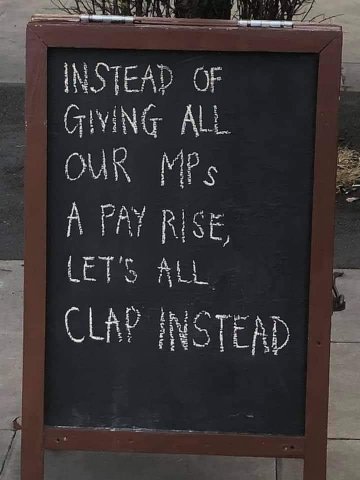 INSTEAD OF
GIVING ALL
OUR MPs
A PAY RISE,
LET'S ALL
CLAP INSTEAD